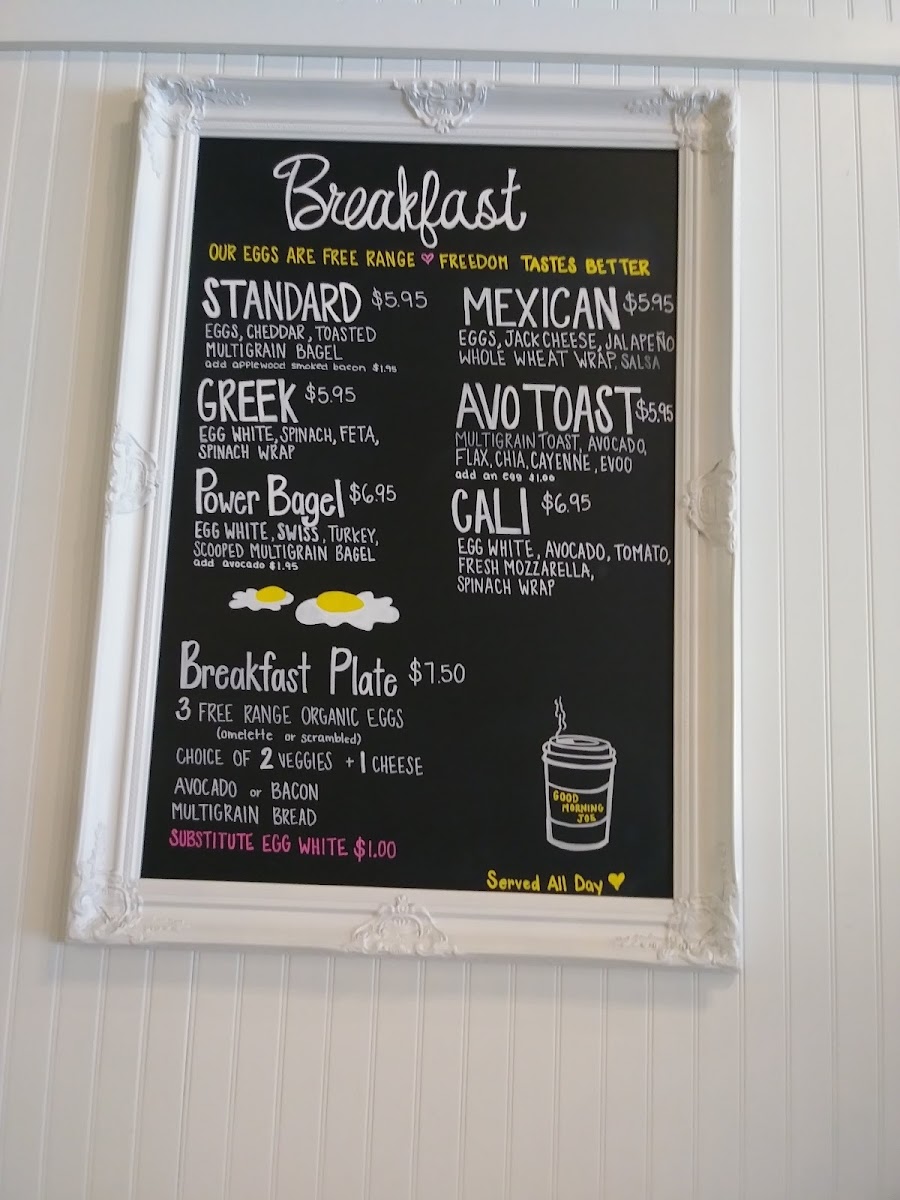 Breakfast
OUR EGGS ARE FREE RANGE ♥ FREEDOM TASTES BETTER
STANDARD $5.95
EGGS, CHEDDAR, TOASTED
MULTIGRAIN BAGEL
add applewood smoked bacon $1.95
GREEK $5.95
EGG WHITE, SPINACH, FETA,
SPINACH WRAP
Power Bagel $6.95
EGG WHITE, SWISS, TURKEY,
SCOOPED MULTIGRAIN BAGEL
add avocado $1.95
MEXICAN $5.95
EGGS, JACK CHEESE, JALAPEÑO
WHOLE WHEAT WRAP, SALSA
AVO TOAST $5.95
MULTIGRAIN TOAST, AVOCADO,
FLAX, CHIA, CAYENNE, EVOO
add an egg $1.00
CALI $6.95
EGG WHITE, AVOCADO, TOMATO,
FRESH MOZZARELLA,
SPINACH WRAP
Breakfast Plate $7.50
3 FREE RANGE ORGANIC EGGS
(omelette or scrambled)
CHOICE OF 2 VEGGIES + 1 CHEESE
AVOCADO or BACON
MULTIGRAIN BREAD
SUBSTITUTE EGG WHITE $1.00
GOOD
MORNING
JOE
Served All Day ♥